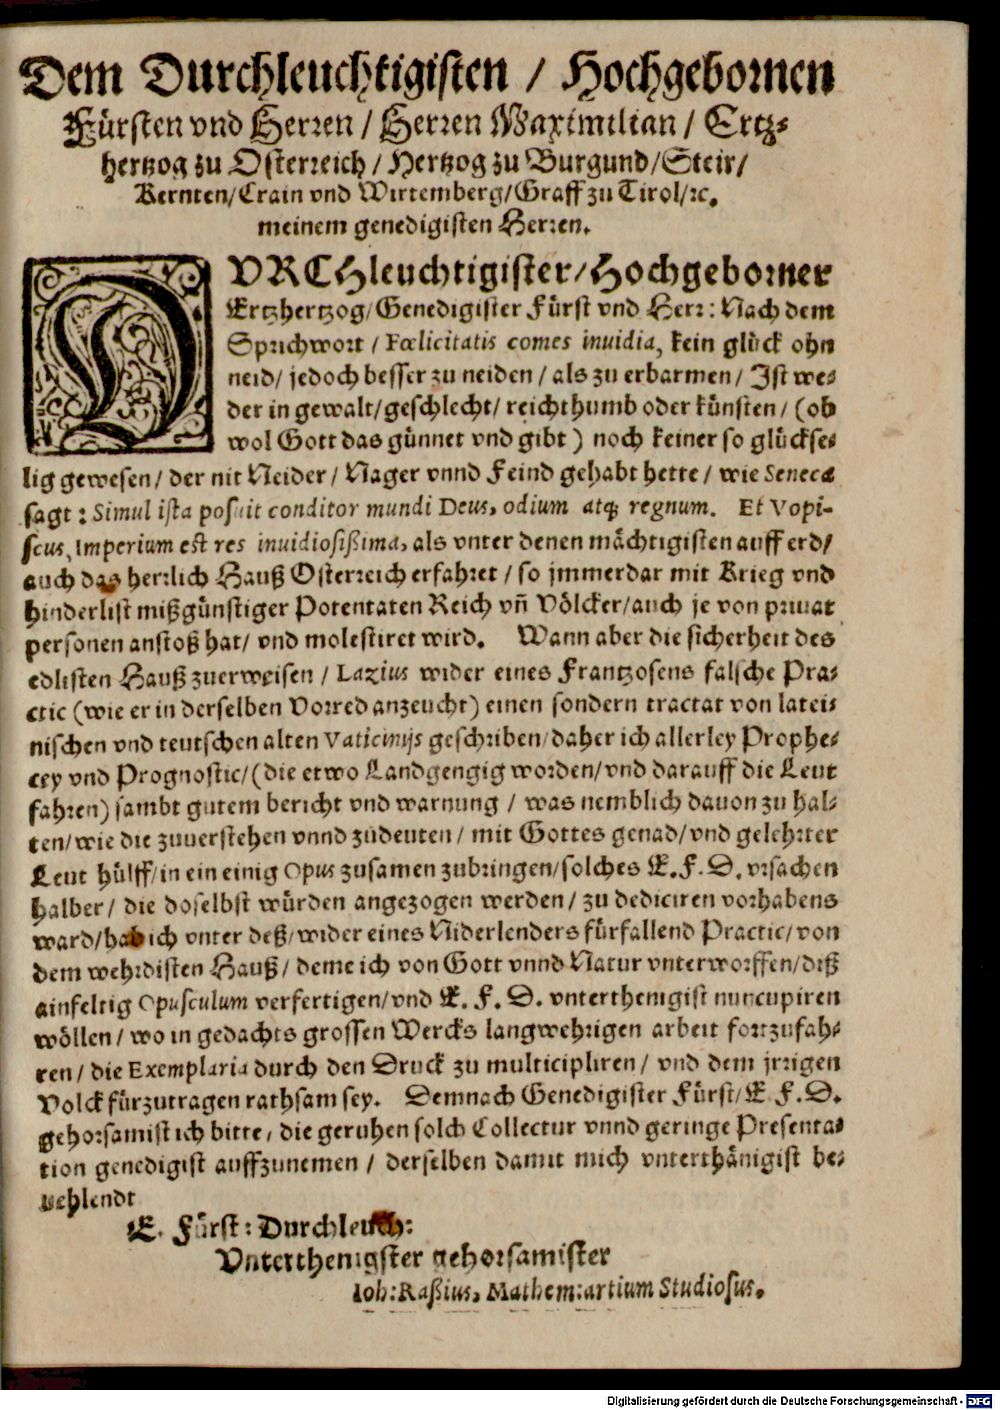 Dem Durchleuchtigisten / Hochgebornen
Fürsten vnd Herren / Herren Maximilian / Ertz-
hertzog zu Osterreich / Hertzog zu Burgund/Steir/
Kernten/Crain vnd Wirtemberg/Graff zu Tirol/ꝛc.
meinem genedigisten Herren.
DVRCHleuchtigister/Hochgeborner
Ertzhertzog/Genedigister Fürst vnd Herr: Nach dem
Sprichwort / Fœlicitatis comes inuidia, kein glück ohn
neid/ jedoch besser zu neiden / als zu erbarmen / Ist we-
der in gewalt/geschlecht/ reichthumb oder künsten / (ob
wol Gott das günnet vnd gibt) noch keiner so glückse-
lig gewesen / der nit Neider / Nager vnnd Feind gehabt hette / wie Seneca
sagt: Simul ista posuit conditor mundi Deus, odium atq; regnum. Et Vopi-
scus, Imperium est res inuidiosißima, als vnter denen mächtigisten auff erd/
auch das herrlich Hauß Osterreich erfahret / so jmmerdar mit Krieg vnd
hinderlist mißgünstiger Potentaten Reich vñ Völcker/auch je von priuat
personen anstoß hat/ vnd molestiret wird. Wann aber die sicherheit des
edlisten Hauß zuerweisen / Lazius wider eines Frantzosens falsche Pra-
ctic (wie er in derselben Vorred anzeucht) einen sondern tractat von latei-
nischen vnd teutschen alten Vaticinijs geschriben/daher ich allerley Prophe-
cey vnd Prognostic/(die etwo Landgengig worden/vnd darauff die Leut
fahren) sambt gutem bericht vnd warnung / was nemblich dauon zu hal-
ten/wie die zuuerstehen vnnd zudeuten / mit Gottes genad/vnd gelehrter
Leut hülff/in ein einig Opus zusamen zubringen/solches E.F.D.vrsachen
halber/ die doselbst würden angezogen werden / zu dediciren vorhabens
ward/hab ich vnter deß/wider eines Niderlenders fürfallend Practic/von
dem wehrdisten Hauß / deme ich von Gott vnnd Natur vnterworffen/diß
ainfeltig Opusculum verfertigen/vnd E. F. D. vnterthenigist nuncupiren
wöllen / wo in gedachts grossen Wercks langwehrigen arbeit fortzufah-
ren / die Exemplaria durch den Druck zu multicipliren / vnd dem jrrigen
Volck fürzutragen rathsam sey. Demnach Genedigister Fürst/ E. F. D.
gehorsamist ich bitte, die geruhen solch Collectur vnnd geringe Presenta-
tion genedigist auffzunemen / derselben damit mich vnterthänigist be-
uehlendt
E. Fürst: Durchleuch:
Vnterthenigster gehorsamister
Ioh: Raßius, Mathem: artium Studiosus.
Digitalisierung gefördert durch die Deutsche Forschungsgemeinschaft - DFG